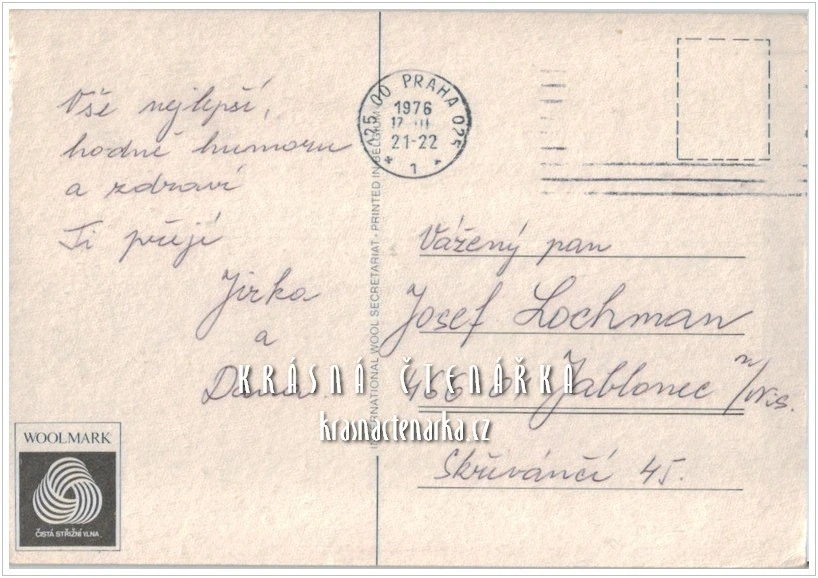 Vše nejlepší,
hodně humoru
a zdraví
Ti přejí
Jirka
a
Dana.
125 00 PRAHA 025
1976
21-22
* 1 *
INTERNATIONAL WOOL SECRETARIAT · PRINTED IN BELGIUM
Vážený pan
Josef Lochman
466 01 Jablonec n/Nis.
Skřivánčí 45.
KRÁSNÁ ČTENÁŘKA
krasnactenarka.cz
WOOLMARK
ČISTÁ STŘIŽNÍ VLNA